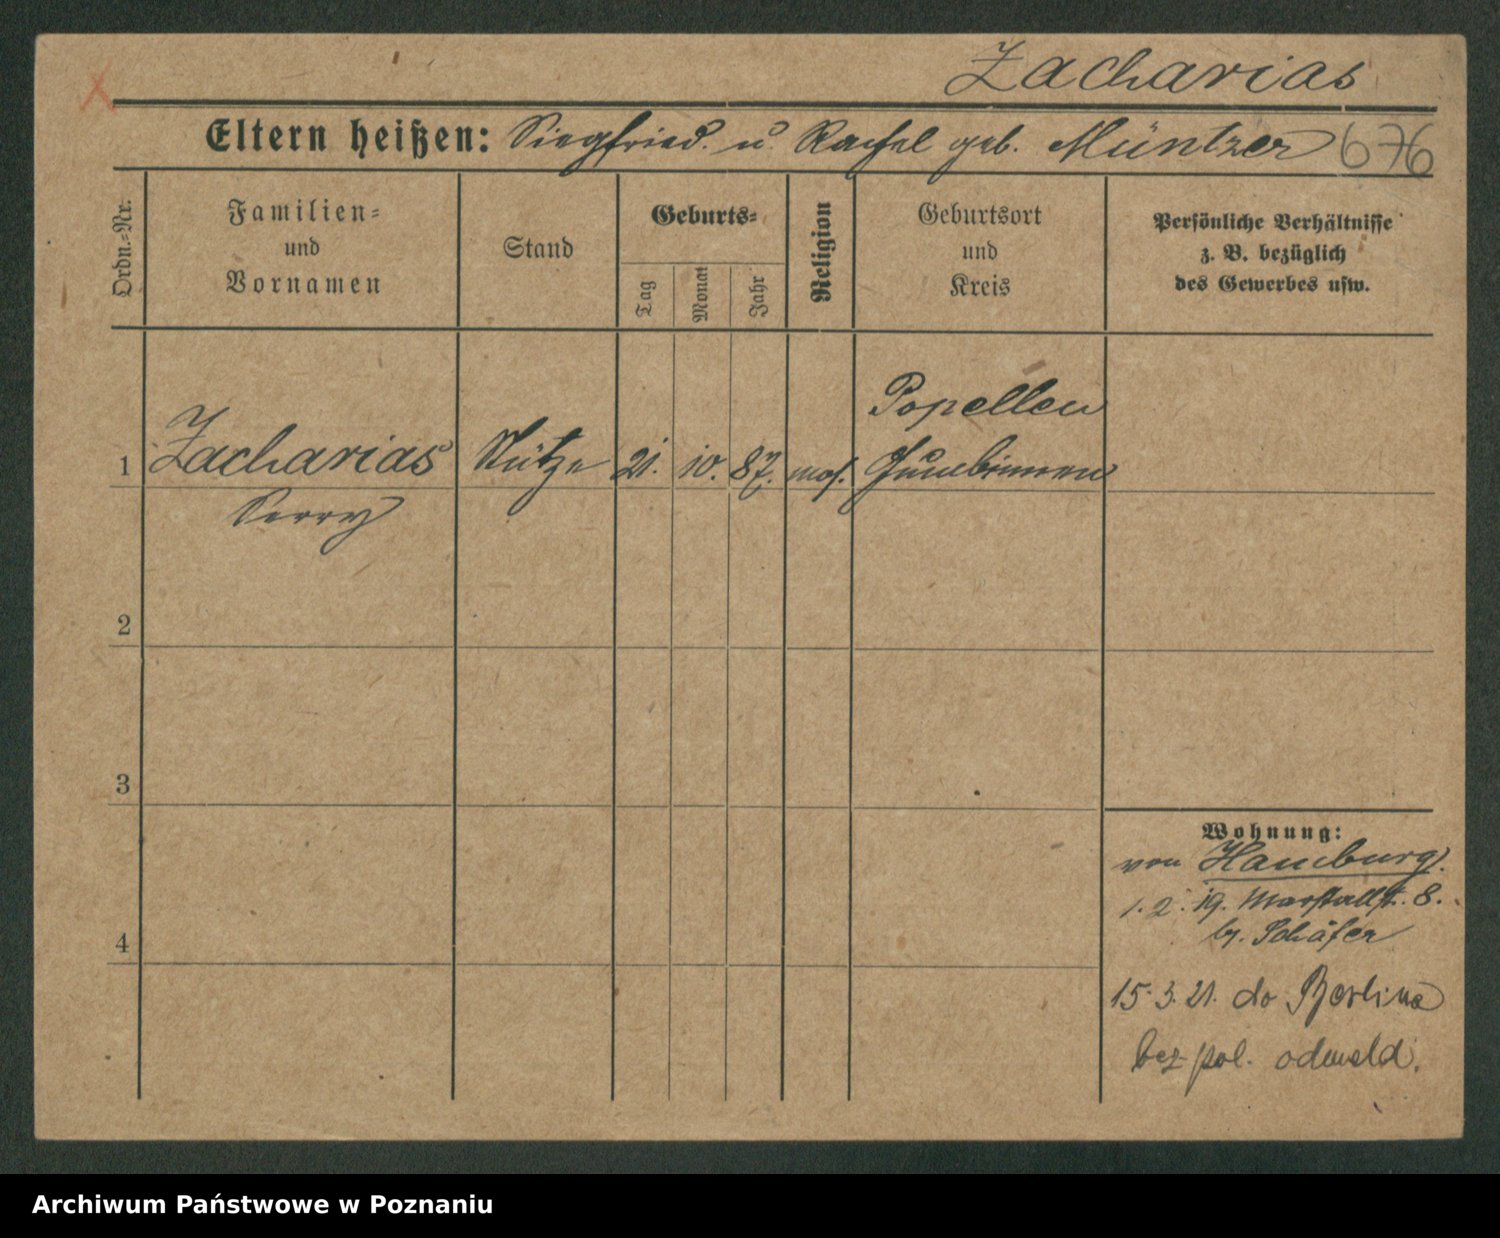 Zacharias
Eltern heißen: Siegfried u. Rachel geb. Müntzer 676
Ordn.-Nr.
Familien-
und
Vornamen
Stand
Geburts-
Tag
Monat
Jahr
Religion
Geburtsort
und
Kreis
Persönliche Verhältnisse
z. B. bezüglich
des Gewerbes usw.
Popellen
1 Zacharias Stütze 21. 10. 87. mos. Gumbinnen
2
3
4
Wohnung:
von Hamburg.
1. 2. 19. Marstallst. 8.
b. Schäfer
15. 3. 21. do Berlina
bez pol. odmeld.
Archiwum Państwowe w Poznaniu